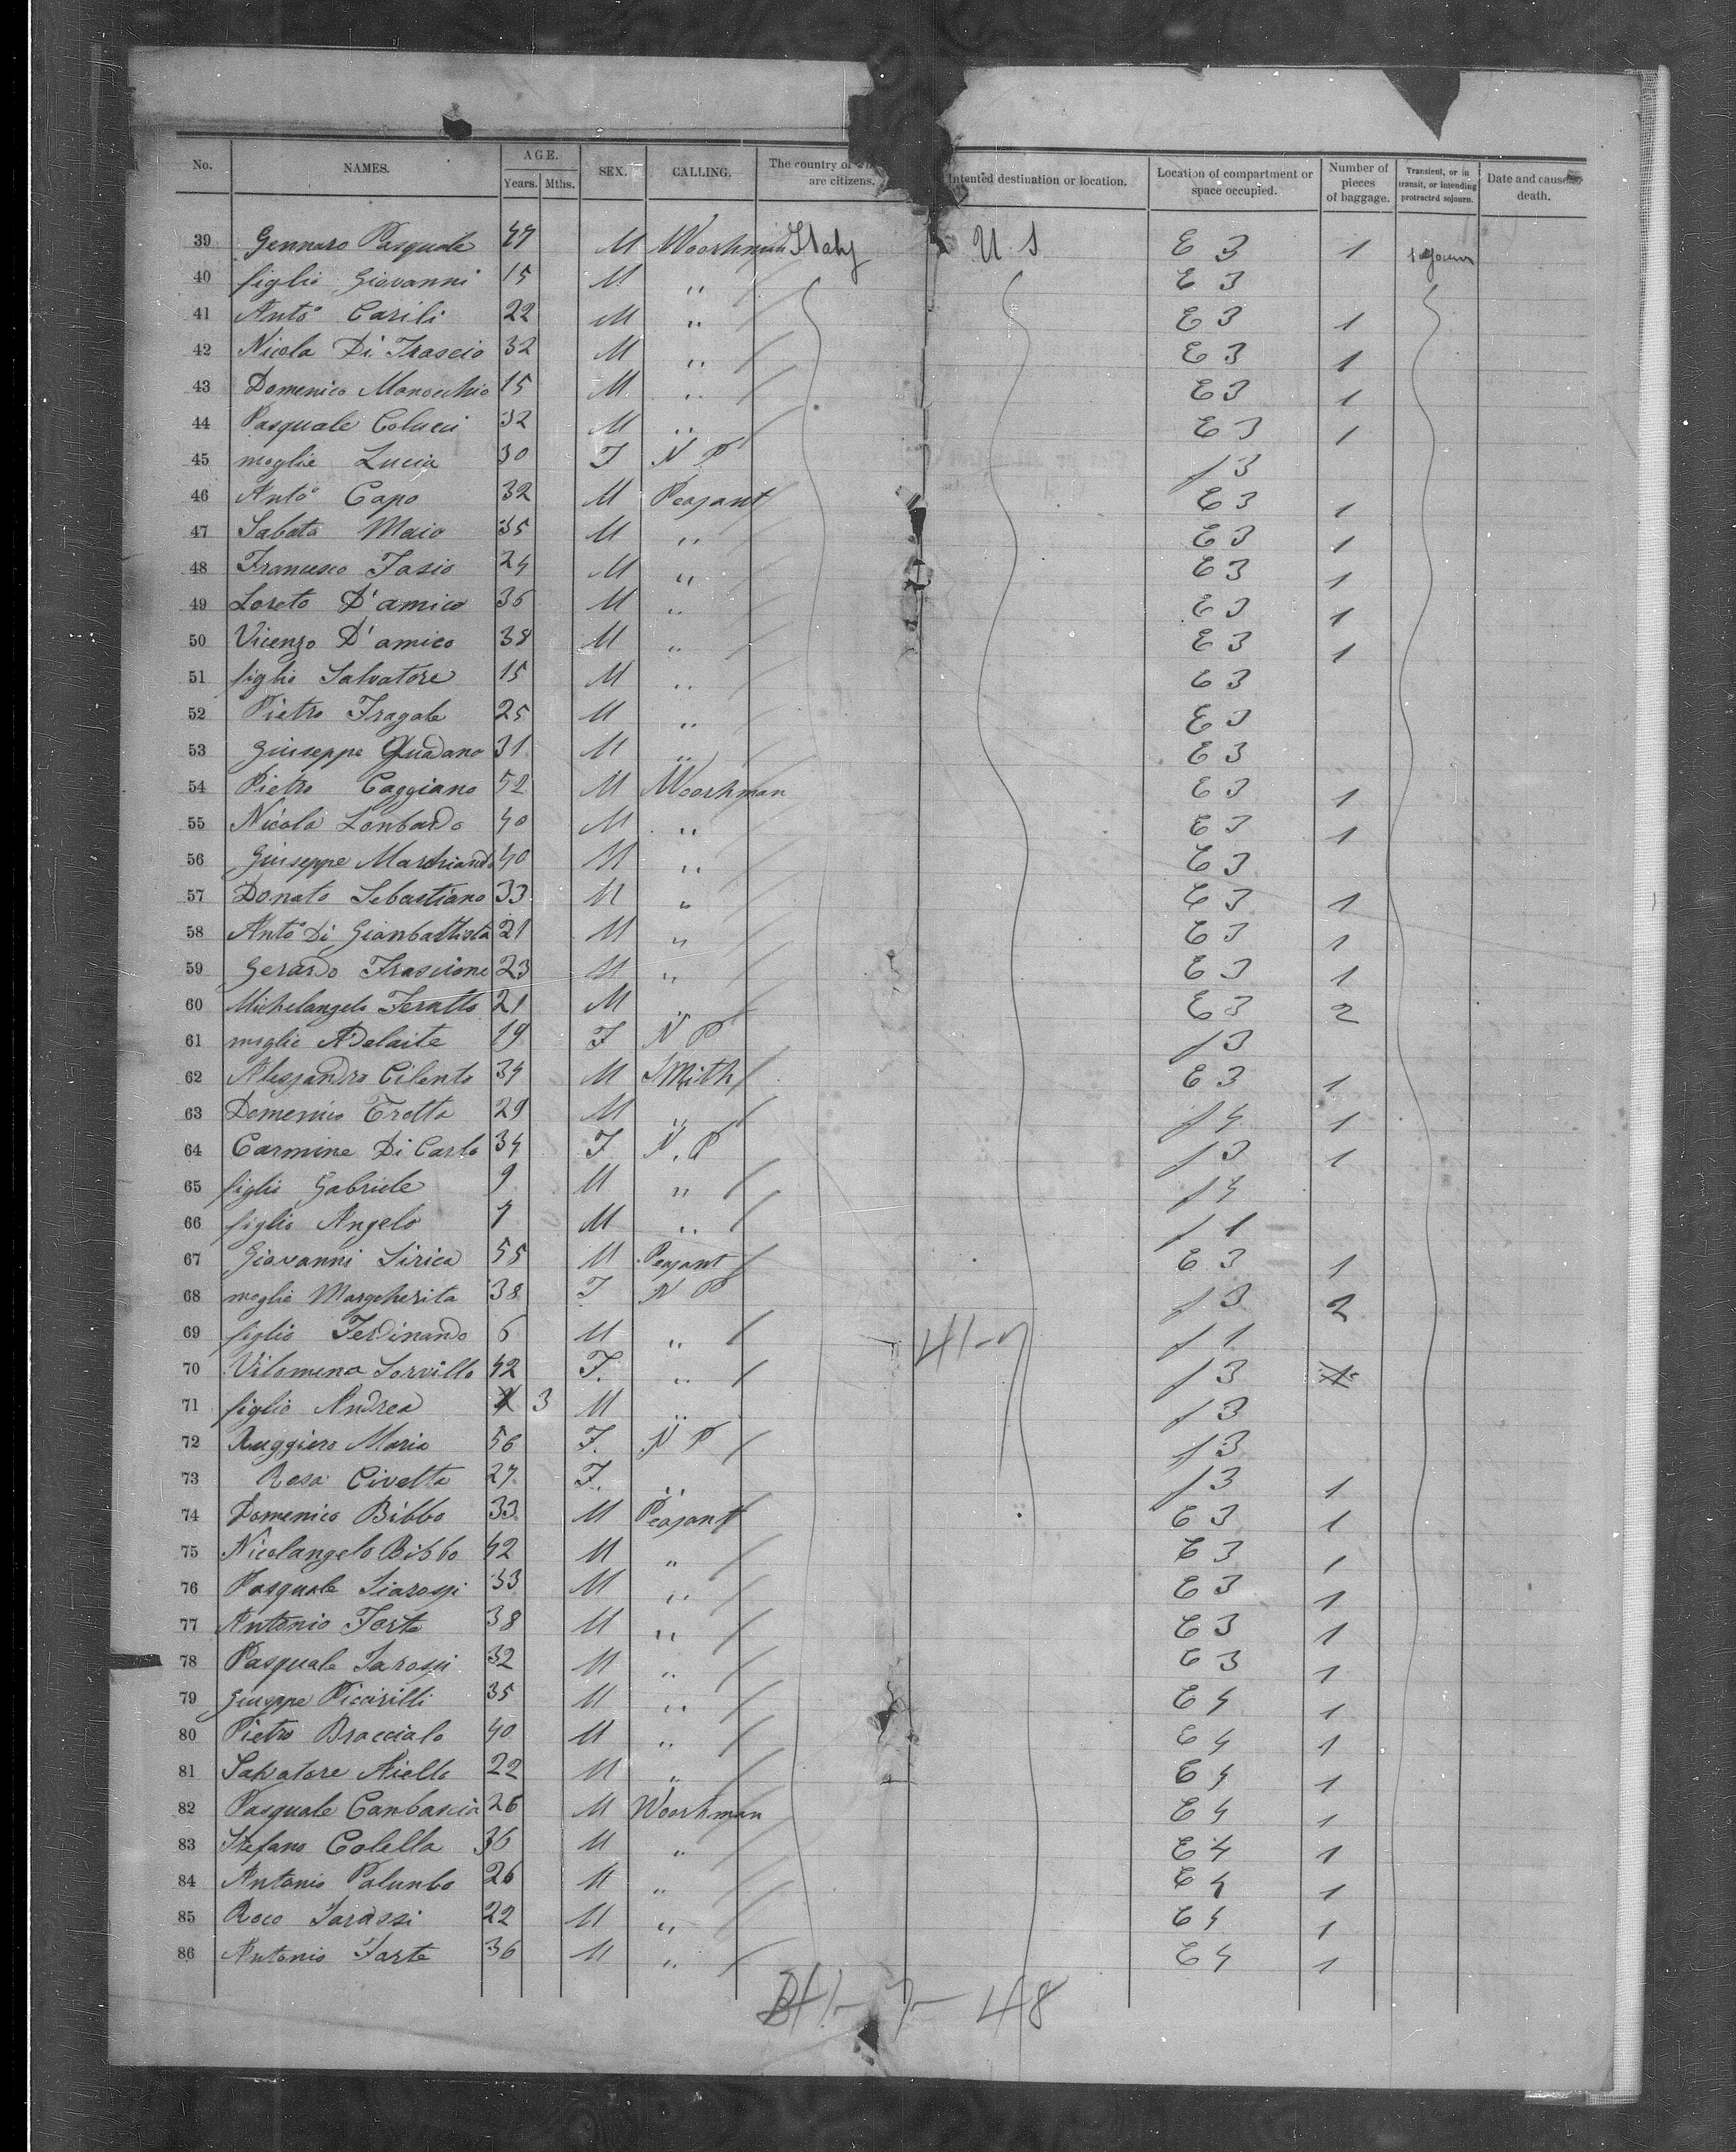 No. NAMES. AGE. Years. Mths. SEX. CALLING. The country of are citizens. Intented destination or location. Location of compartment or space occupied. Number of pieces of baggage. Transient, or in transit, or intending protracted sojourn. Date and cause death.
39 Gennaro Pasquale 47 M Woorkman Italy U. S E 3 1 sojourn
40 figlio Giovanni 15 M " E 3
41 Anto Carili 22 M " E 3 1
42 Nicola Di Frascio 32 M " E 3 1
43 Domenico Manocchio 15 M " E 3 1
44 Pasquale Colucci 32 M " E 3 1
45 moglie Lucia 30 F N P f 3
46 Anto Capo 32 M Peasant E 3 1
47 Sabato Maio 35 M " E 3 1
48 Francesco Fasio 24 M " E 3 1
49 Loreto D'amico 36 M " E 3 1
50 Vicenzo D'amico 38 M " E 3 1
51 figlio Salvatore 15 M " E 3
52 Pietro Fragale 25 M " E 3
53 Giuseppe Quadano 31 M " E 3
54 Pietro Caggiano 52 M Woorkman E 3 1
55 Nicola Lonbardo 40 M " E 3 1
56 Giuseppe 40 M " E 3
57 Donato Sebastiano 33 M " E 3 1
58 Anto Di Gianbattista 21 M " E 3 1
59 Gerardo Frascione 23 M " E 3 1
60 Michelangelo Feratto 21 M " E 3 2
61 moglie Adelaite 19 F N P f 3
62 Alessandro Cilento 34 M Smith E 3 1
63 Domenico Trotta 29 M " f 4 1
64 Carmine Di Carlo 34 F N. P f 3 1
65 figlio Gabriele 9 M " f 4
66 figlio Angelo 7 M " f 1
67 Giovanni Sirica 55 M Peasant E 3 1
68 moglie Margherita 38 F N P f 3 2
69 figlio Ferdinando 6 M " 41-7 f 1
70 Vilomena Sorvillo 42 F. " f 3
71 figlio Andrea 3 M " f 3
72 Ruggiero Maria 56 F. N P f 3
73 Rosa Civetta 27 F. " f 3 1
74 Domenico Bibbo 33 M Peasant E 3 1
75 Nicolangelo Bibbo 42 M " E 3 1
76 Pasquale Siarossi 33 M " E 3 1
77 Antonio Forte 38 M " E 3 1
78 Pasquale Iarossi 32 M " E 3 1
79 Giuseppe Piccirilli 35 M " E 4 1
80 Pietro Braccialo 40 M " E 4 1
81 Salvatore Aiello 22 M " E 4 1
82 Pasquale Canbascia 26 M Woorkman E 4 1
83 Stefano Colella 36 M " E 4 1
84 Antonio Palunbo 26 M " E 4 1
85 Roco Iarassi 22 M " E 4 1
86 Antonio Farte 36 M " E 4 1
41- 7- 48